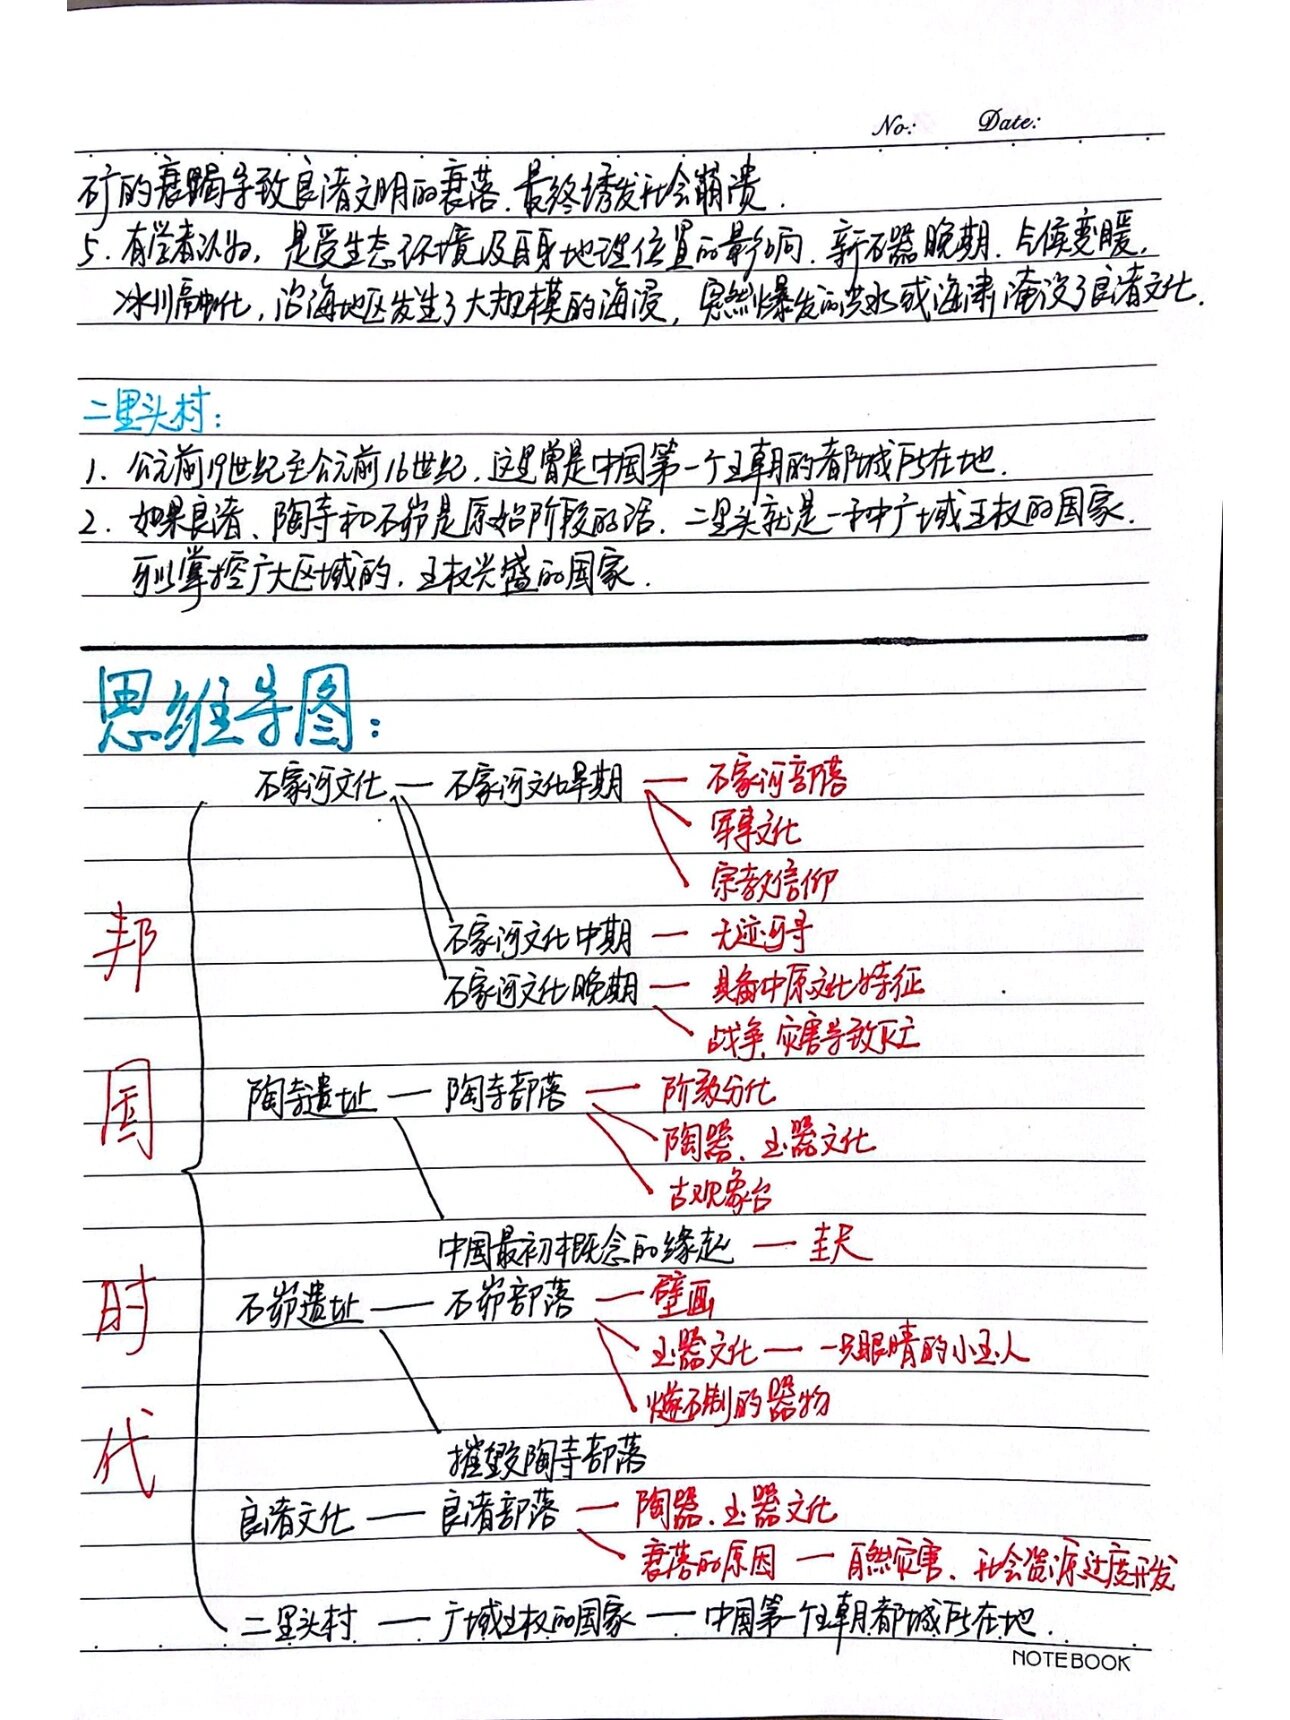 No: Date:
矿的衰竭导致良渚文明的衰落.最终诱发社会崩溃.
5. 有学者认为, 是受生态环境及自身地理位置的影响.新石器晚期.气候变暖,
冰川融化, 沿海地区发生了大规模的海浸, 突然爆发的洪水或海啸淹没了良渚文化.
二里头村:
1. 公元前19世纪至公元前16世纪.这里曾是中国第一个王朝的都城所在地.
2. 如果良渚、陶寺和石峁是原始阶段的话.二里头就是一种广域王权的国家.
可以掌控广大区域的.王权兴盛的国家.
思维导图:
邦国时代
石家河文化 — 石家河文化早期 — 石家河部落
军事文化
宗教信仰
石家河文化中期 — 无迹可寻
石家河文化晚期 — 具备中原文化特征
战争.灾害导致灭亡
陶寺遗址 — 陶寺部落 — 阶级分化
陶器、玉器文化
古观象台
中国最初概念的缘起 — 圭尺
石峁遗址 — 石峁部落 — 壁画
玉器文化 — 一只眼睛的小玉人
制的器物
摧毁陶寺部落
良渚文化 — 良渚部落 — 陶器.玉器文化
衰落的原因 — 自然灾害、社会资源过度开发
二里头村 — 广域王权的国家 — 中国第一个王朝都城所在地.
NOTEBOOK